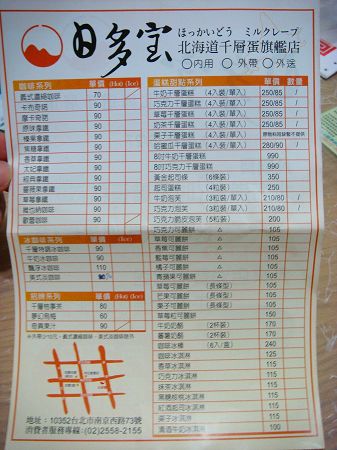 日多宝
ほっかいどう ミルクレープ
北海道千層蛋旗艦店
○內用 ○外帶 ○外送
咖啡系列 單價 (Hot) (Ice)
義式濃縮咖啡 70
卡布奇諾 90
摩卡奇諾 90
原味拿鐵 90
榛果拿鐵 90
焦糖拿鐵 90
香草拿鐵 90
太妃拿鐵 90
經典拿鐵 90
薔薇果拿鐵 90
草莓拿鐵 90
維也納咖啡 90
歐蕾咖啡 90
冰咖啡系列 單價 (Hot) (Ice)
千層特調冰咖啡 90
牛奶冰咖啡 90
飄浮冰咖啡 110
美式冰咖啡
招牌系列 單價 (Hot) (Ice)
千層柚香茶 80
夢幻烏梅 60
奇異果汁 90
地址：10352台北市南京西路73號
消費者服務專線：(02)2558-2155
蛋糕甜點系列 單價 數量
牛奶千層蛋糕 (4入裝/單入) 250/85 /
巧克力千層蛋糕 (4入裝/單入) 250/85 /
草莓千層蛋糕 (4入裝/單入) 250/85 /
奶茶千層蛋糕 (4入裝/單入) 250/85 /
栗子千層蛋糕 (4入裝/單入)
哈蜜瓜千層蛋糕 (4入裝/單入) 280/90 /
8吋牛奶千層蛋糕 990
8吋巧克力千層蛋糕 990
黃金起司條 (6條裝) 350
起司蛋糕 (4粒裝) 250
牛奶泡芙 (3粒裝/單入) 210/80 /
巧克力泡芙 (3粒裝/單入) 210/80 /
巧克力脆皮泡芙 (5粒裝) 200
巧克力可麗餅 105
草莓可麗餅 105
香蕉可麗餅 105
藍莓可麗餅 105
橘子可麗餅 105
青蘋果可麗餅 105
草莓可麗餅 (長條型) 105
芒果可麗餅 (長條型) 105
栗子可麗餅 (長條型) 105
草莓粒可麗餅 150
牛奶奶酪 (2杯裝) 170
蕃薯奶酪 (2杯裝) 170
咖啡冰棒 (6入/盒) 240
咖啡冰淇淋 125
香草冰淇淋 115
巧克力冰淇淋 115
抹茶冰淇淋 115
黑糖核桃冰淇淋 115
紅酒起司冰淇淋 115
栗子冰淇淋 115
清酒牛奶冰淇淋 100